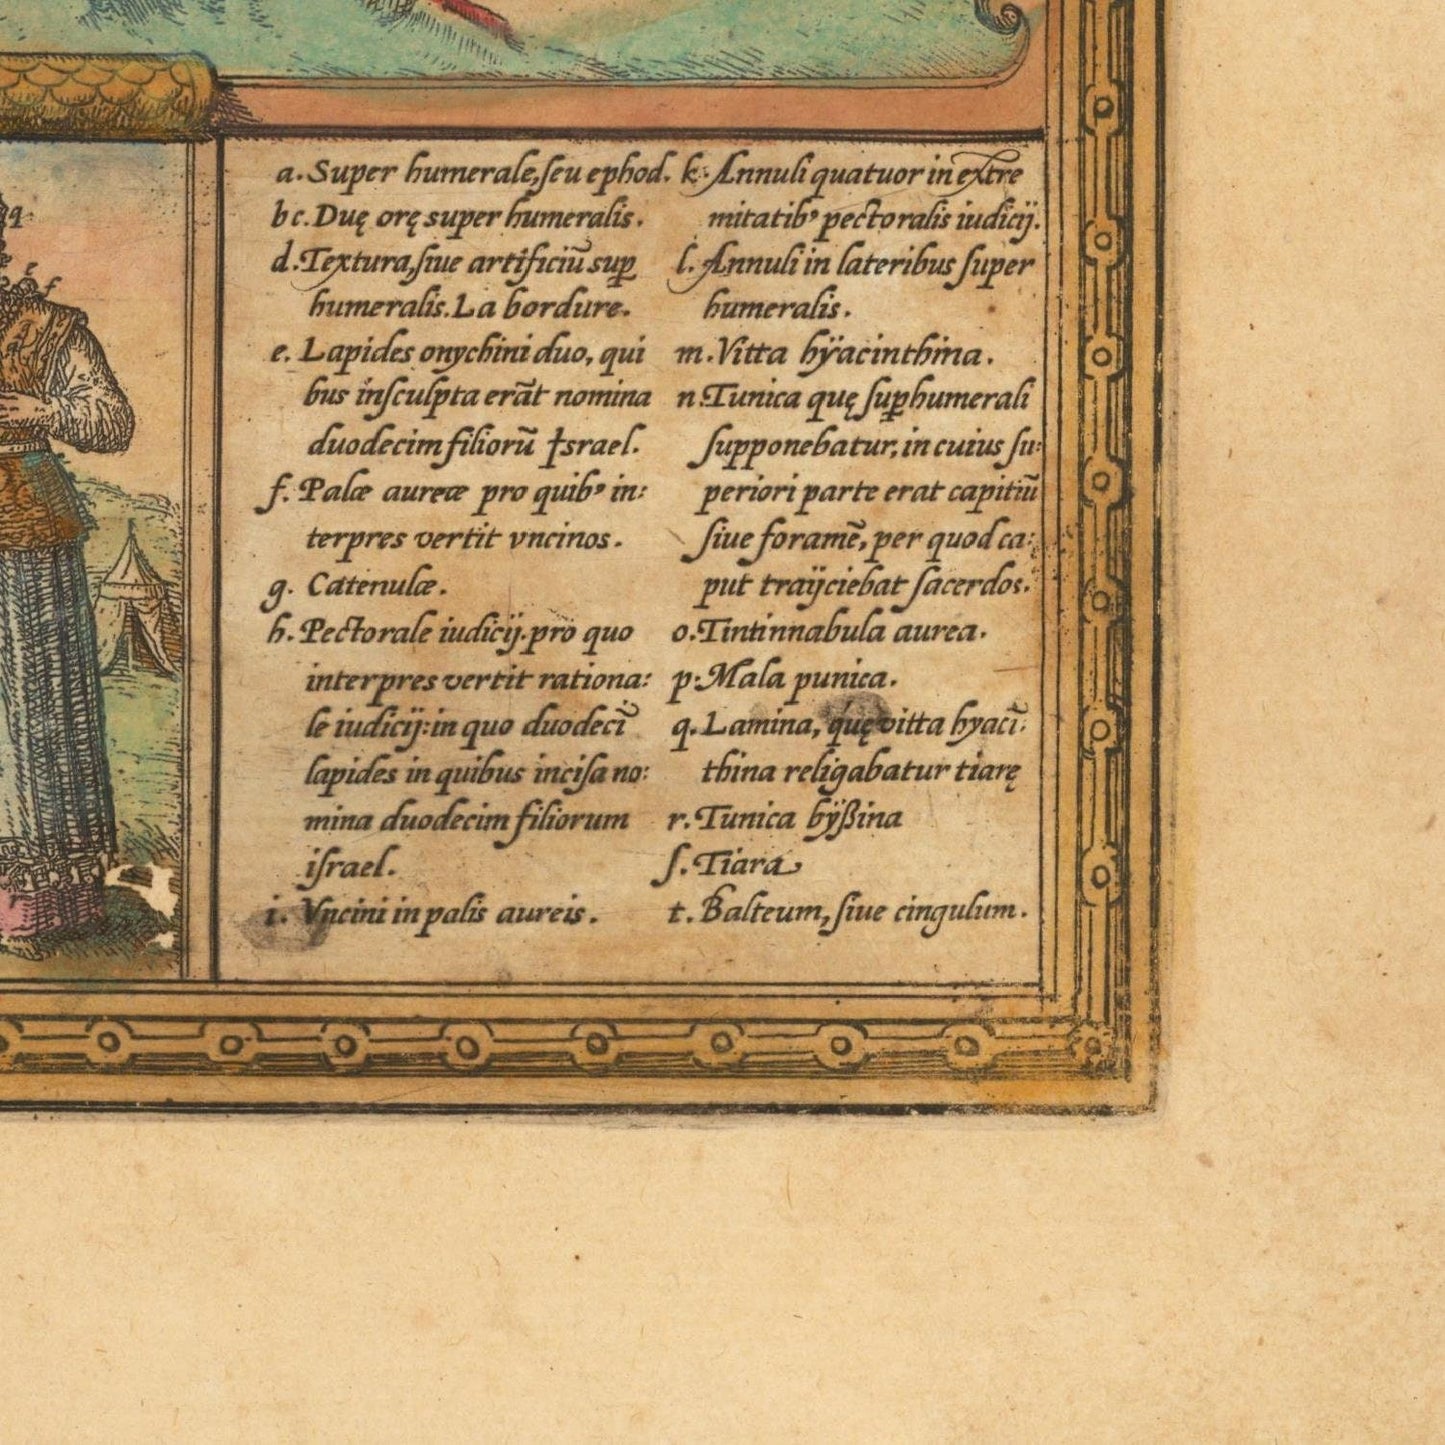 a. Super humerale, ſeu ephod.
b c. Duę orę super humeralis.
d. Textura, ſiue artificiū sup
humeralis. La bordure.
e. Lapides onychini duo, qui
bus inſculpta erāt nomina
duodecim filiorū Israel.
f. Palæ aureæ pro quibꝰ in:
terpres vertit vncinos.
g. Catenulæ.
h. Pectorale iudicij. pro quo
interpres vertit rationa:
le iudicij: in quo duodecī
lapides in quibus inciſa no:
mina duodecim filiorum
iſrael.
i. Vncini in palis aureis.
k. Annuli quatuor in extre
mitatibꝰ pectoralis iudicij.
l. Annuli in lateribus ſuper
humeralis.
m. Vitta hÿacinthina.
n. Tunica quę ſuꝑhumerali
ſupponebatur, in cuius ſu:
periori parte erat capitiū
ſiue foramē, per quod ca:
put traijciebat ſacerdos.
o. Tintinnabula aurea.
p. Mala punica.
q. Lamina, quę vitta hyacī:
thina religabatur tiarę
r. Tunica bÿßina
ſ. Tiara
t. Balteum, ſiue cingulum.
q
e
f
r